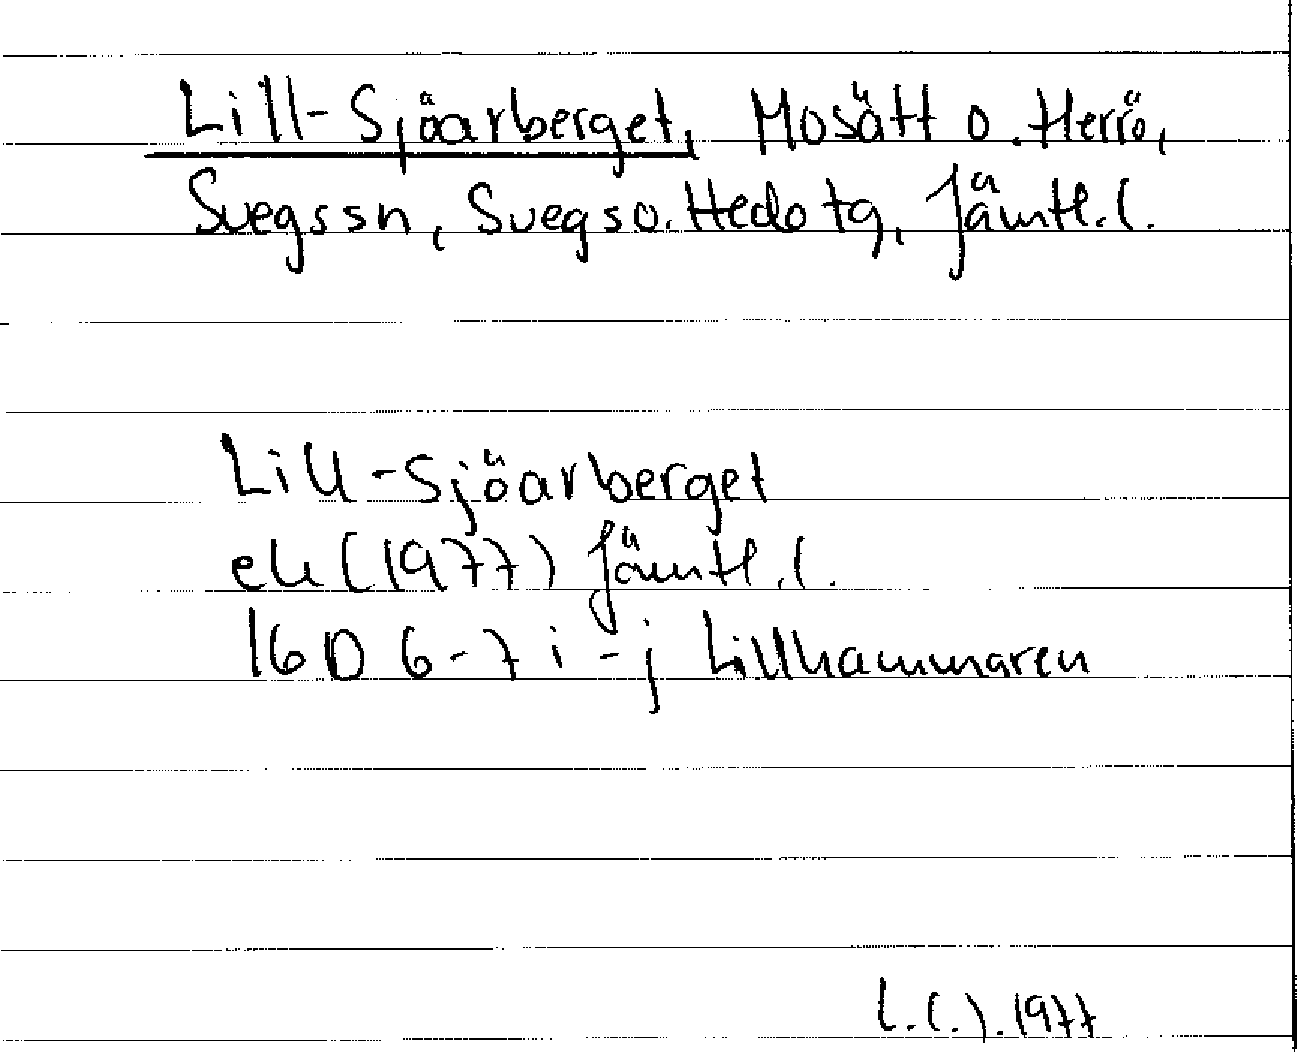 Lill-Sjöarberget, Mosätt o. Herrö,
Svegs sn, Svegs o. Hede tg, Jämtl. l.
Lill-Sjöarberget
ek (1977) Jämtl. l.
16D 6-7 i-j Lillhammaren
1977